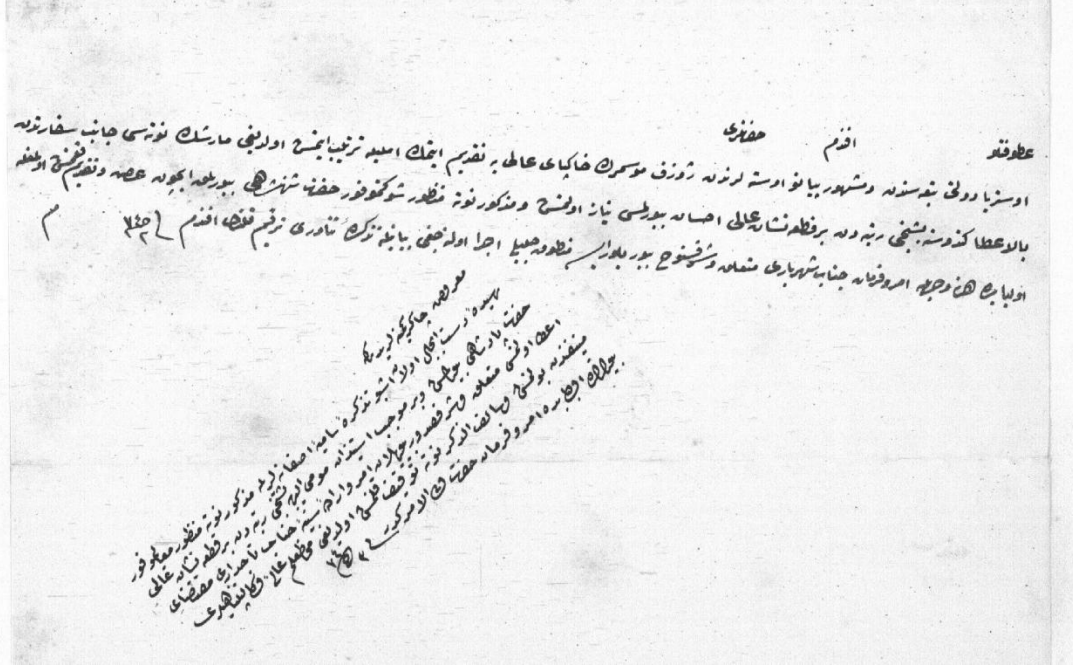 عطوفتلو افندم حضرتلری
اوستریا دولتی تبعه‌سندن و مشهور پیانو اوسته لرندن ژوزف خاکپای عالی یه تقدیم ایتمک املیله ترتیب ایتمش اولدیغی مارشک نوته سی جانب سفارتدن
بالاعطا کندوسنه بشنجی رتبه دن بر قطعه نشان عالی احسان بیورلمسی نیاز اولنمش و مذکور نوته منظور شوکتموفور حضرت شهنشاهی بیورلمق ایچون عرض و تقدیم قلنمش اولمغله
اولبابده هر نه وجهله امر و فرمان جناب شهریاری متعلق و شرفسنوح بیوریلور ایسه منطوق جلیلی اجرا اوله جغی بیانیله تذکرهٔ ثناوری ترقیم قلندی افندم
م
معروض چاکر کمینه لریدر که
رسیدهٔ دست تعظیم اولان اشبو تذکرهٔ سامیهٔ آصفانه لریله مذکور نوته منظور معالیموفور
حضرت پادشاهی بیورلمش و بر موجب استیذان مومی الیهه بشنجی رتبه دن بر قطعه نشان عالی
اعطا اولنمسی متعلق و شرفصدور بیوریلان امر و ارادهٔ سنیهٔ جناب تاجداری مقتضای
منیفندن بولنمش و سالف الذکر نوته توقیف قلنمش اولدیغی
اولبابده امر و فرمان حضرت ولی الامرکدر